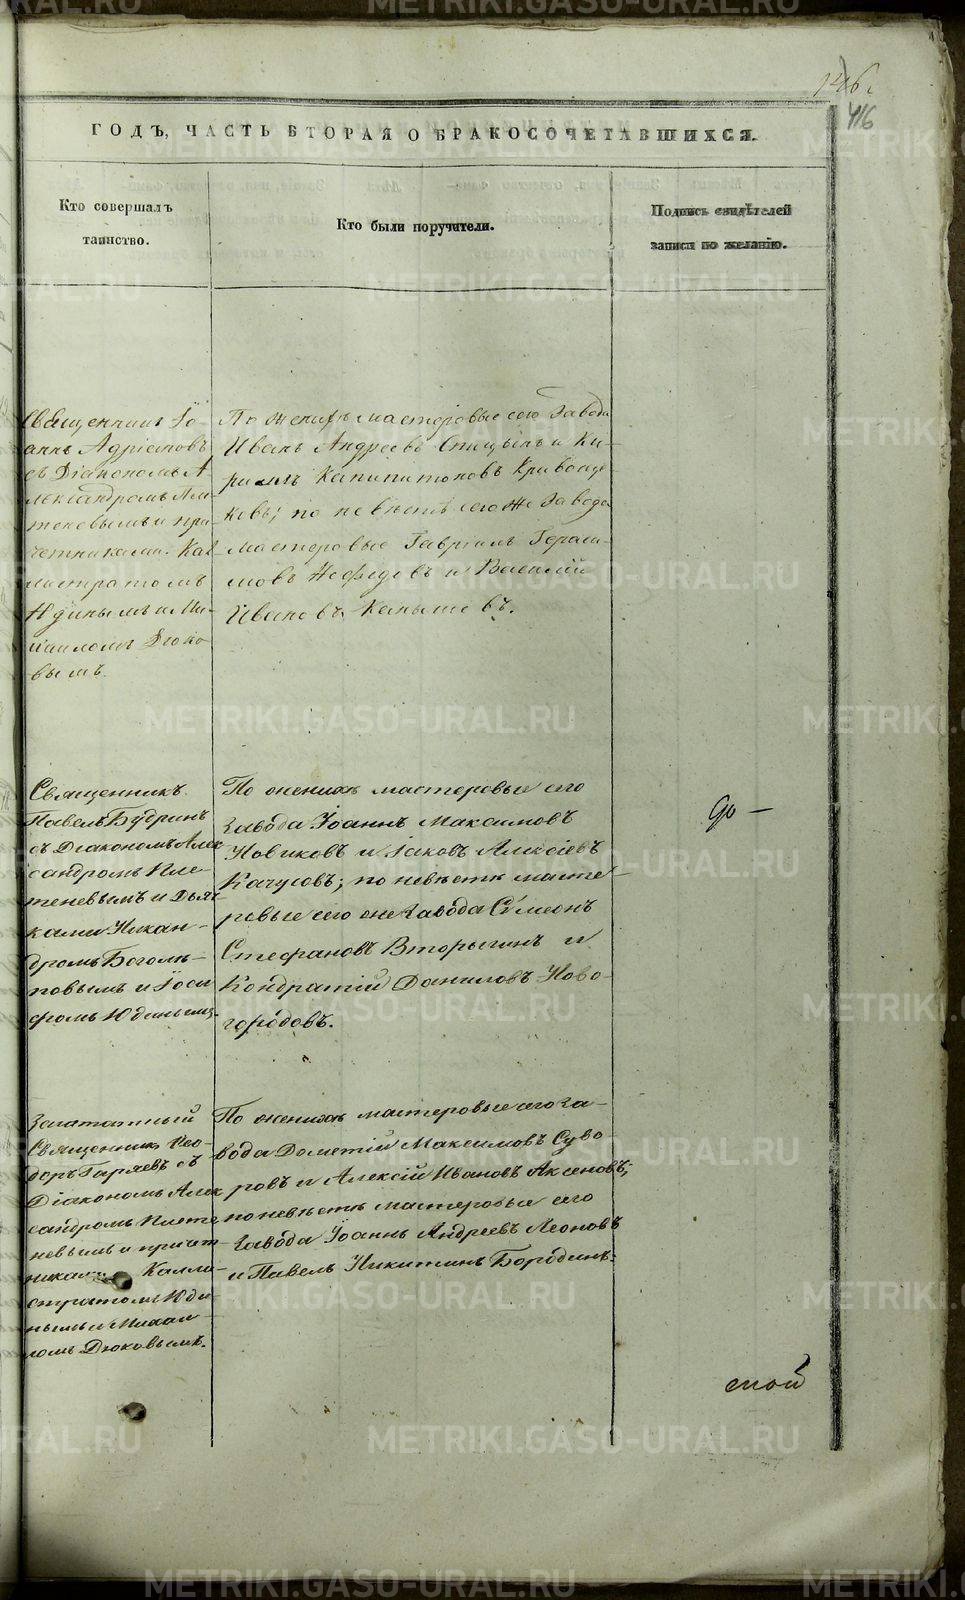 416
ГОДЪ, ЧАСТЬ ВТОРАЯ О БРАКОСОЧЕТАВШИХСЯ.
Кто совершалъ
таинство.
Кто были поручители.
Подпись свидѣтелей
записи по желанію.
Священникъ Іо-
аннъ Адріановъ
съ Діакономъ А-
лександромъ Пле-
теневымъ и при-
четниками: Кал-
листратомъ
Юдинымъ и Ми-
хаиломъ Дюко-
вымъ.
По женихѣ мастеровые сего завода
Иванъ Андреевъ Спицынъ и Ки-
рилъ Капитоновъ
ковъ; по невѣстѣ сего же завода
мастеровые Гавріилъ Гераси-
мовъ Нефедовъ и Василій
Ивановъ Канышевъ.
Священникъ
Павелъ Будринъ
съ Діакономъ Алек
сандромъ Пле-
теневымъ и Дьяч
ками Никан-
дромъ Боголѣ-
повымъ и Іоси
фомъ Юдинымъ.
По женихѣ мастеровые сего
завода Іоаннъ Максимовъ
Новиковъ и Іаковъ Алексіевъ
Качусовъ; по невѣстѣ масте-
ровые сего же завода Сѵмеонъ
Стефановъ Вторыгинъ и
Кондратій Даниловъ Ново-
городовъ.
Заштатный
Священникъ Ѳео-
доръ Гаряевъ съ
Діакономъ Алек
сандромъ Плете
невымъ и причет
никами Калли-
стратомъ Юди
нымъ и Михаи-
ломъ Дюковымъ.
По женихѣ мастеровые сего за-
вода Дометій Максимовъ Суво
ровъ и Алексій Ивановъ Аксеновъ;
по невѣстѣ мастеровые сего
завода Іоаннъ Андреевъ Леоновъ
и Павелъ Никитинъ Бородинъ.
мой
METRIKI.GASO-URAL.RU